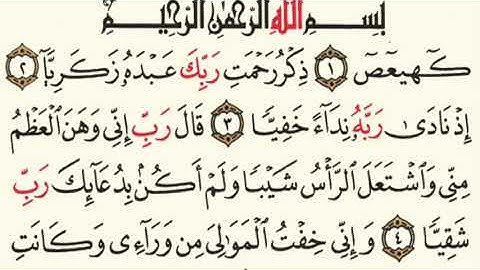 بِسْمِ اللَّهِ الرَّحْمَٰنِ الرَّحِيمِ
كٓهيعٓصٓ ١ ذِكْرُ رَحْمَتِ رَبِّكَ عَبْدَهُۥ زَكَرِيَّآ ٢
إِذْ نَادَىٰ رَبَّهُۥ نِدَآءً خَفِيًّا ٣ قَالَ رَبِّ إِنِّى وَهَنَ ٱلْعَظْمُ
مِنِّى وَٱشْتَعَلَ ٱلرَّأْسُ شَيْبًا وَلَمْ أَكُنۢ بِدُعَآئِكَ رَبِّ
شَقِيًّا ٤ وَإِنِّى خِفْتُ ٱلْمَوَٰلِىَ مِن وَرَآءِى وَكَانَتِ